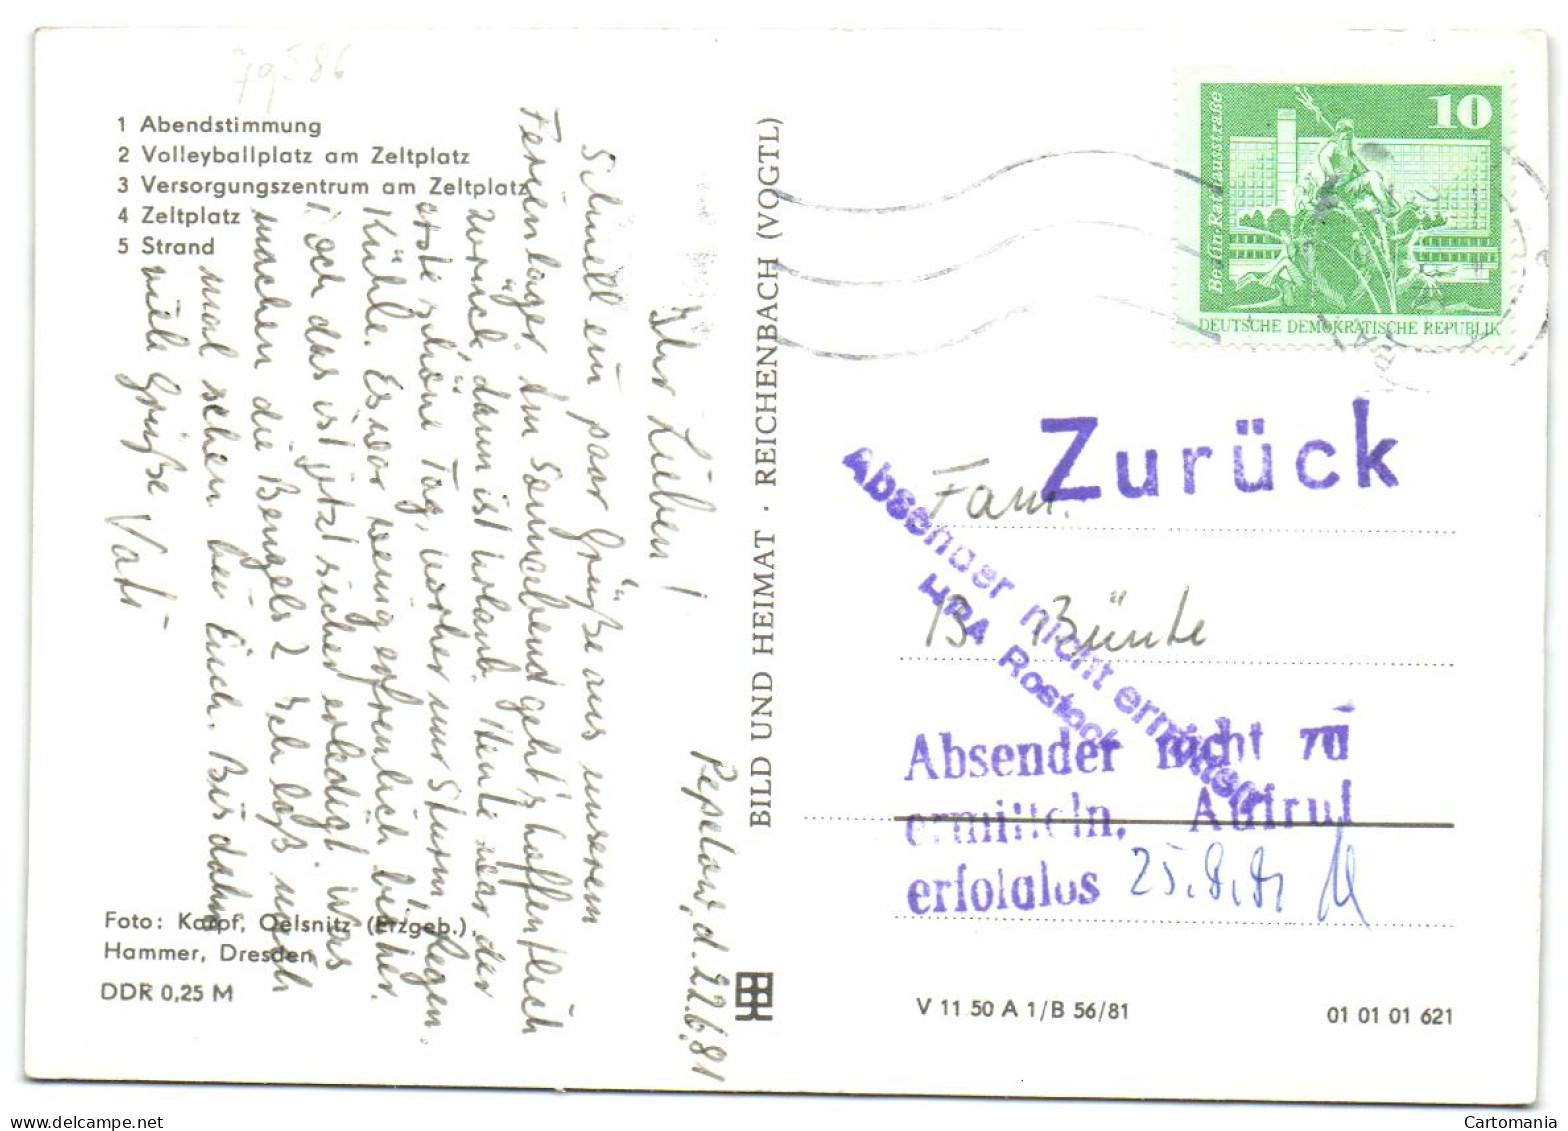 79586
1 Abendstimmung
2 Volleyballplatz am Zeltplatz
3 Versorgungszentrum am Zeltplatz
4 Zeltplatz
5 Strand
Pepelow, d. 22.6.81
Ihr Lieben!
Schnell ein paar Grüße aus unserem
Ferienlager. Am Sonnabend geht's hoffentlich
zurück, dann ist Urlaub. Heute war der
erste schöne Tag, vorher nur Sturm, Regen,
Kühle. Es war wenig erfreulich bisher.
Doch das ist jetzt sicher erledigt. Was
machen die Bengels? Ich laß mich
mal sehen bei Euch. Bis dahin
viele Grüße Vati
Foto: Kampf, Oelsnitz (Erzgeb.),
Hammer, Dresden
DDR 0,25 M
BILD UND HEIMAT · REICHENBACH (VOGTL)
10
Berlin, Rathausstraße
DEUTSCHE DEMOKRATISCHE REPUBLIK
Zurück
Absender nicht ermittelt
HPA Rostock
Fam.
B Bünte
Absender nicht zu
ermitteln, Aufruf
erfolglos 25.8.81
V 11 50 A 1/B 56/81
01 01 01 621
Cartomania